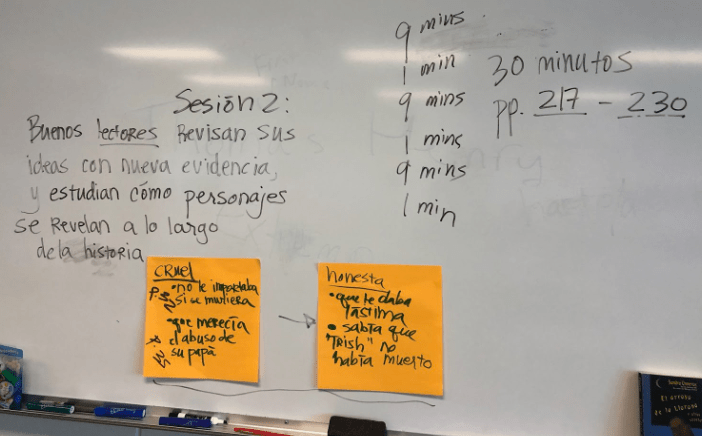 Sesión 2:
Buenos lectores Revisan sus
ideas con nueva evidencia,
y estudian cómo personajes
se Revelan a lo largo
de la historia
9 mins
1 min
9 mins
1 mins
9 mins
1 min
30 minutos
pp. 217 - 230
CRUEl
• no le importaba
si se muriera
• que merecía
el abuso de
su papá
honesta
• que le daba
lástima
• sabía que
"Trish" no
había muerto
El arroyo
de la Llorona